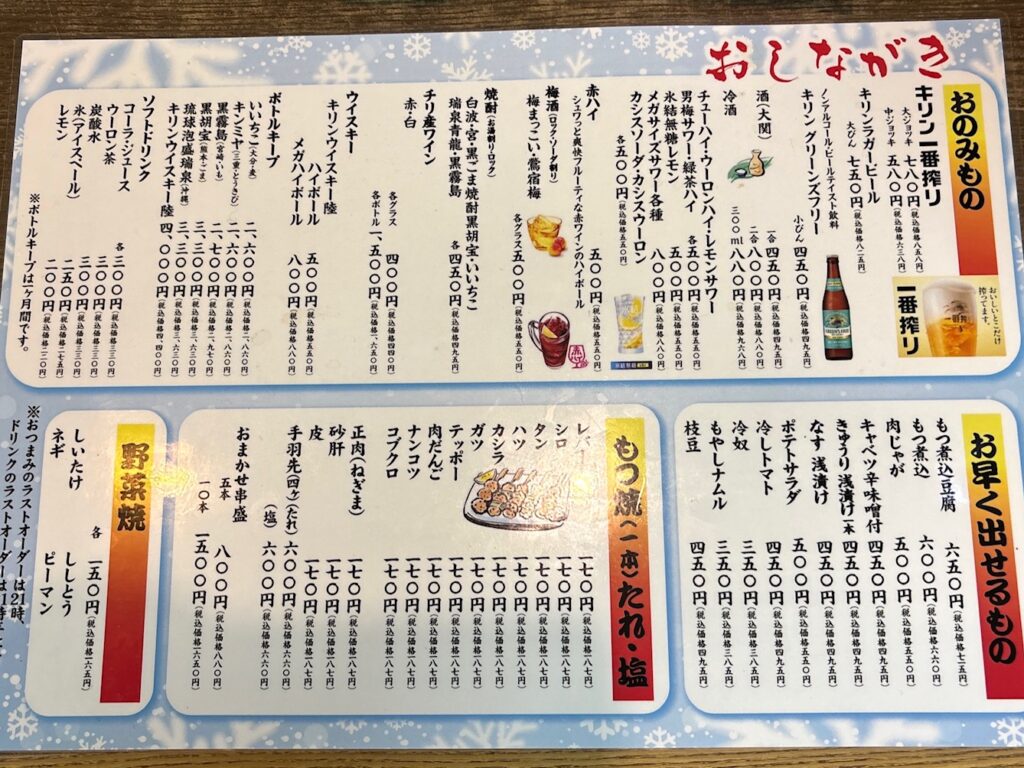 おしながき
おのみもの
キリン一番搾り
大ジョッキ 七八〇円(税込価格八五八円)
中ジョッキ 五八〇円(税込価格六三八円)
キリンラガービール
大びん 七五〇円(税込価格八二五円)
ノンアルコール・ビールテイスト飲料
キリン グリーンズフリー
小びん 四五〇円(税込価格四九五円)
おいしいとこだけ
搾ってます。
一番搾り
酒(大関)
一合 四五〇円(税込価格四九五円)
二合 八〇〇円(税込価格八八〇円)
冷酒
三〇〇ml 八八〇円(税込価格九六八円)
チューハイ・ウーロンハイ・レモンサワー
男梅サワー・緑茶ハイ
各五〇〇円(税込価格五五〇円)
氷結無糖レモン
五〇〇円(税込価格五五〇円)
メガサイズサワー各種
八〇〇円(税込価格八八〇円)
カシスソーダ・カシスウーロン
各五〇〇円(税込価格五五〇円)
赤ハイ
五〇〇円(税込価格五五〇円)
シュワっと爽快フルーティな赤ワインのハイボール
梅酒(ロック・ソーダ割り)
梅まっこい・鶯宿梅
各グラス五〇〇円(税込価格五五〇円)
焼酎(お湯割り・ロック)
白波・宮・黒ごま焼酎黒胡宝・いいちこ
瑞泉青龍・黒霧島
各四五〇円(税込価格四九五円)
チリ産ワイン
赤・白
各グラス 四〇〇円(税込価格四四〇円)
各ボトル 一、五〇〇円(税込価格一、六五〇円)
ウイスキー
キリンウイスキー陸
ハイボール 五〇〇円(税込価格五五〇円)
メガハイボール 八〇〇円(税込価格八八〇円)
ボトルキープ
いいちこ(大分・麦) 二、六〇〇円(税込価格二、八六〇円)
キンミヤ(三重・とうきび) 二、六〇〇円(税込価格二、八六〇円)
黒霧島(宮崎・いも) 二、七〇〇円(税込価格二、九七〇円)
黒胡宝(熊本・ごま) 三、三〇〇円(税込価格三、六三〇円)
琉球泡盛瑞泉(沖縄) 三、三〇〇円(税込価格三、六三〇円)
キリンウイスキー陸 四、〇〇〇円(税込価格四、四〇〇円)
ソフトドリンク
コーラ・ジュース 各三〇〇円(税込価格三三〇円)
ウーロン茶 三〇〇円(税込価格三三〇円)
炭酸水 三〇〇円(税込価格三三〇円)
氷(アイスペール) 二五〇円(税込価格二七五円)
レモン 二〇〇円(税込価格二二〇円)
※ボトルキープは一ヶ月間です。
お早く出せるもの
もつ煮込豆腐 六五〇円(税込価格七一五円)
もつ煮込 六〇〇円(税込価格六六〇円)
肉じゃが 五〇〇円(税込価格五五〇円)
キャベツ辛味噌付 四五〇円(税込価格四九五円)
きゅうり浅漬け一本 三五〇円(税込価格三八五円)
なす浅漬け 四五〇円(税込価格四九五円)
ポテトサラダ 五〇〇円(税込価格五五〇円)
冷しトマト 四五〇円(税込価格四九五円)
冷奴 三五〇円(税込価格三八五円)
もやしナムル 三五〇円(税込価格三八五円)
枝豆 四五〇円(税込価格四九五円)
もつ焼(一本)たれ・塩
レバー 一七〇円(税込価格一八七円)
シロ 一七〇円(税込価格一八七円)
タン 一七〇円(税込価格一八七円)
ハツ 一七〇円(税込価格一八七円)
カシラ 一七〇円(税込価格一八七円)
ガツ 一七〇円(税込価格一八七円)
テッポー 一七〇円(税込価格一八七円)
肉だんご 一七〇円(税込価格一八七円)
ナンコツ 一七〇円(税込価格一八七円)
コブクロ 一七〇円(税込価格一八七円)
正肉(ねぎま) 一七〇円(税込価格一八七円)
砂肝 一七〇円(税込価格一八七円)
皮 一七〇円(税込価格一八七円)
手羽先(四ヶ)(たれ) 六〇〇円(税込価格六六〇円)
(塩) 六〇〇円(税込価格六六〇円)
おまかせ串盛
五本 八〇〇円(税込価格八八〇円)
一〇本 一五〇〇円(税込価格一六五〇円)
野菜焼
各一五〇円(税込価格一六五円)
しいたけ ししとう
ネギ ピーマン
※おつまみのラストオーダーは21時、
ドリンクのラストオーダーは21時